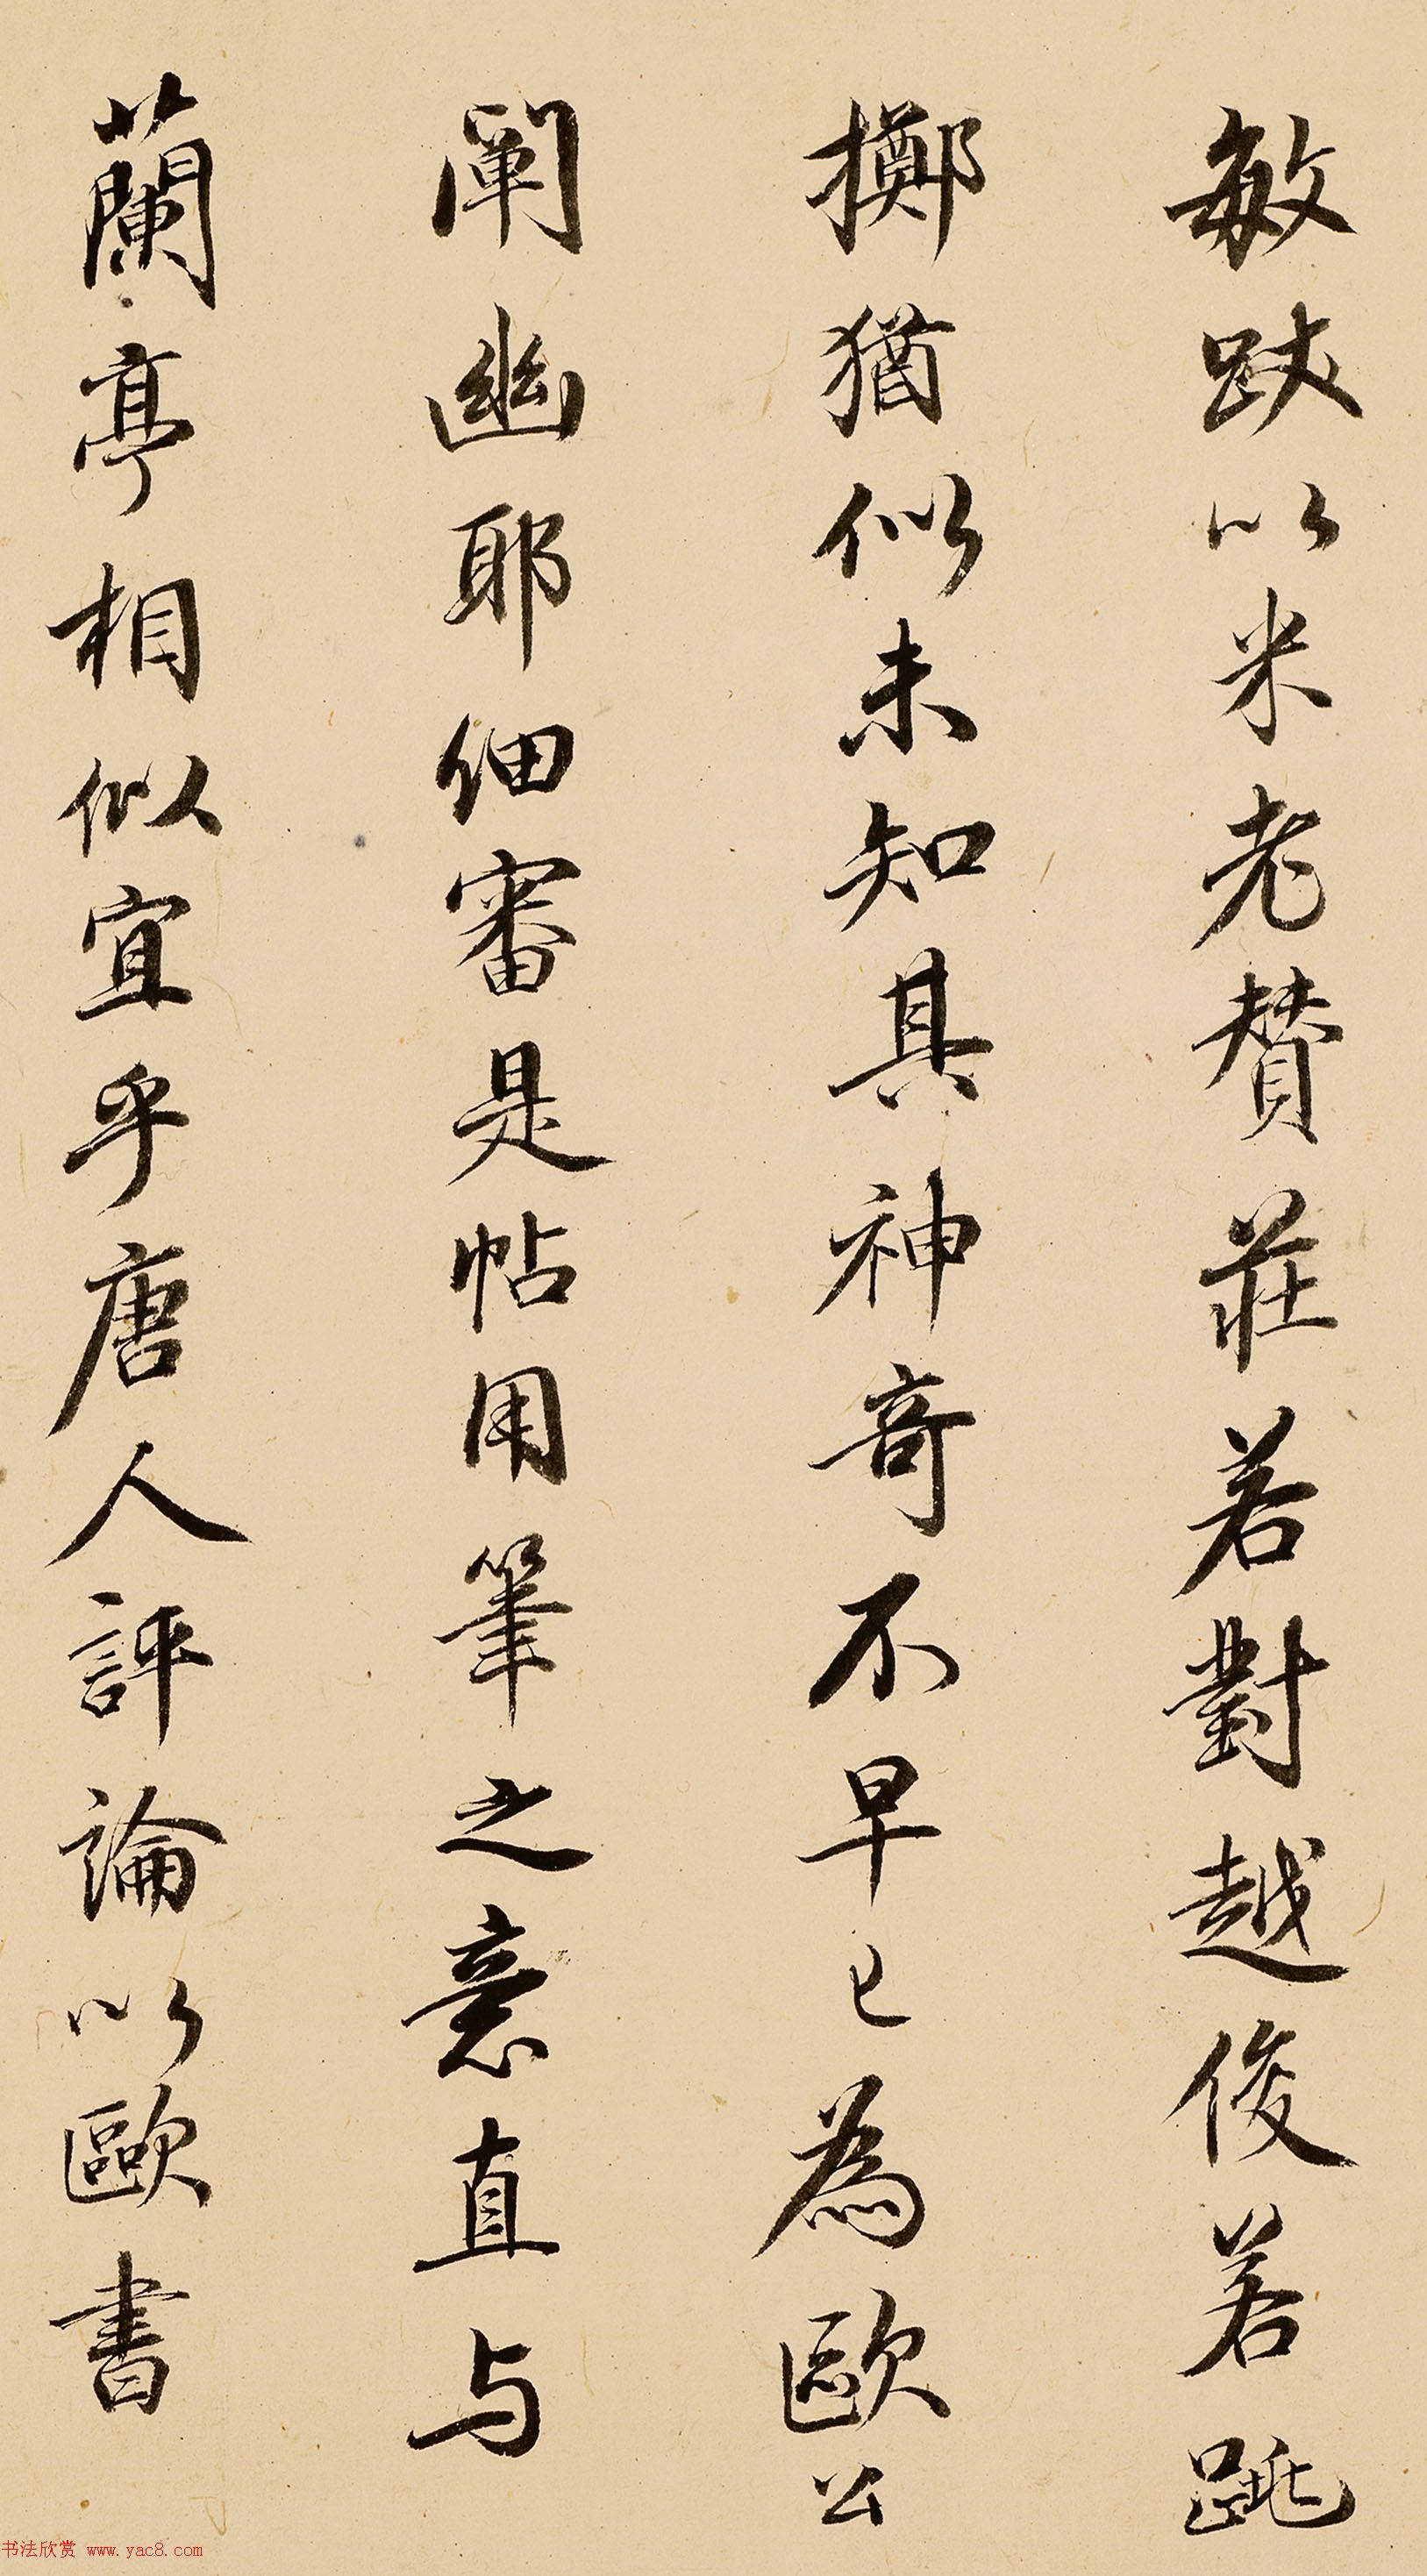 敏跋以米老贊莊若對越俊若跳
擲猶似未知其神奇不早已為歐公
闡幽耶細審是帖用筆之意直与
蘭亭相似宜乎唐人評論以歐書
书法欣赏 www.yac8.com